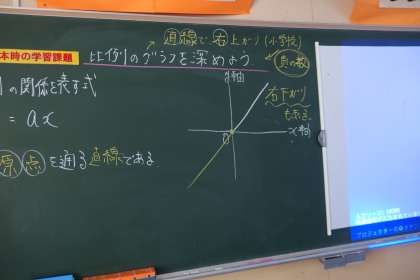 直線で右上がり(小学校)
本時の学習課題
比例のグラフを深めよう
負の数
の関係を表す式
y軸
右下がり
もある
= ax
x軸
O
原点を通る直線である